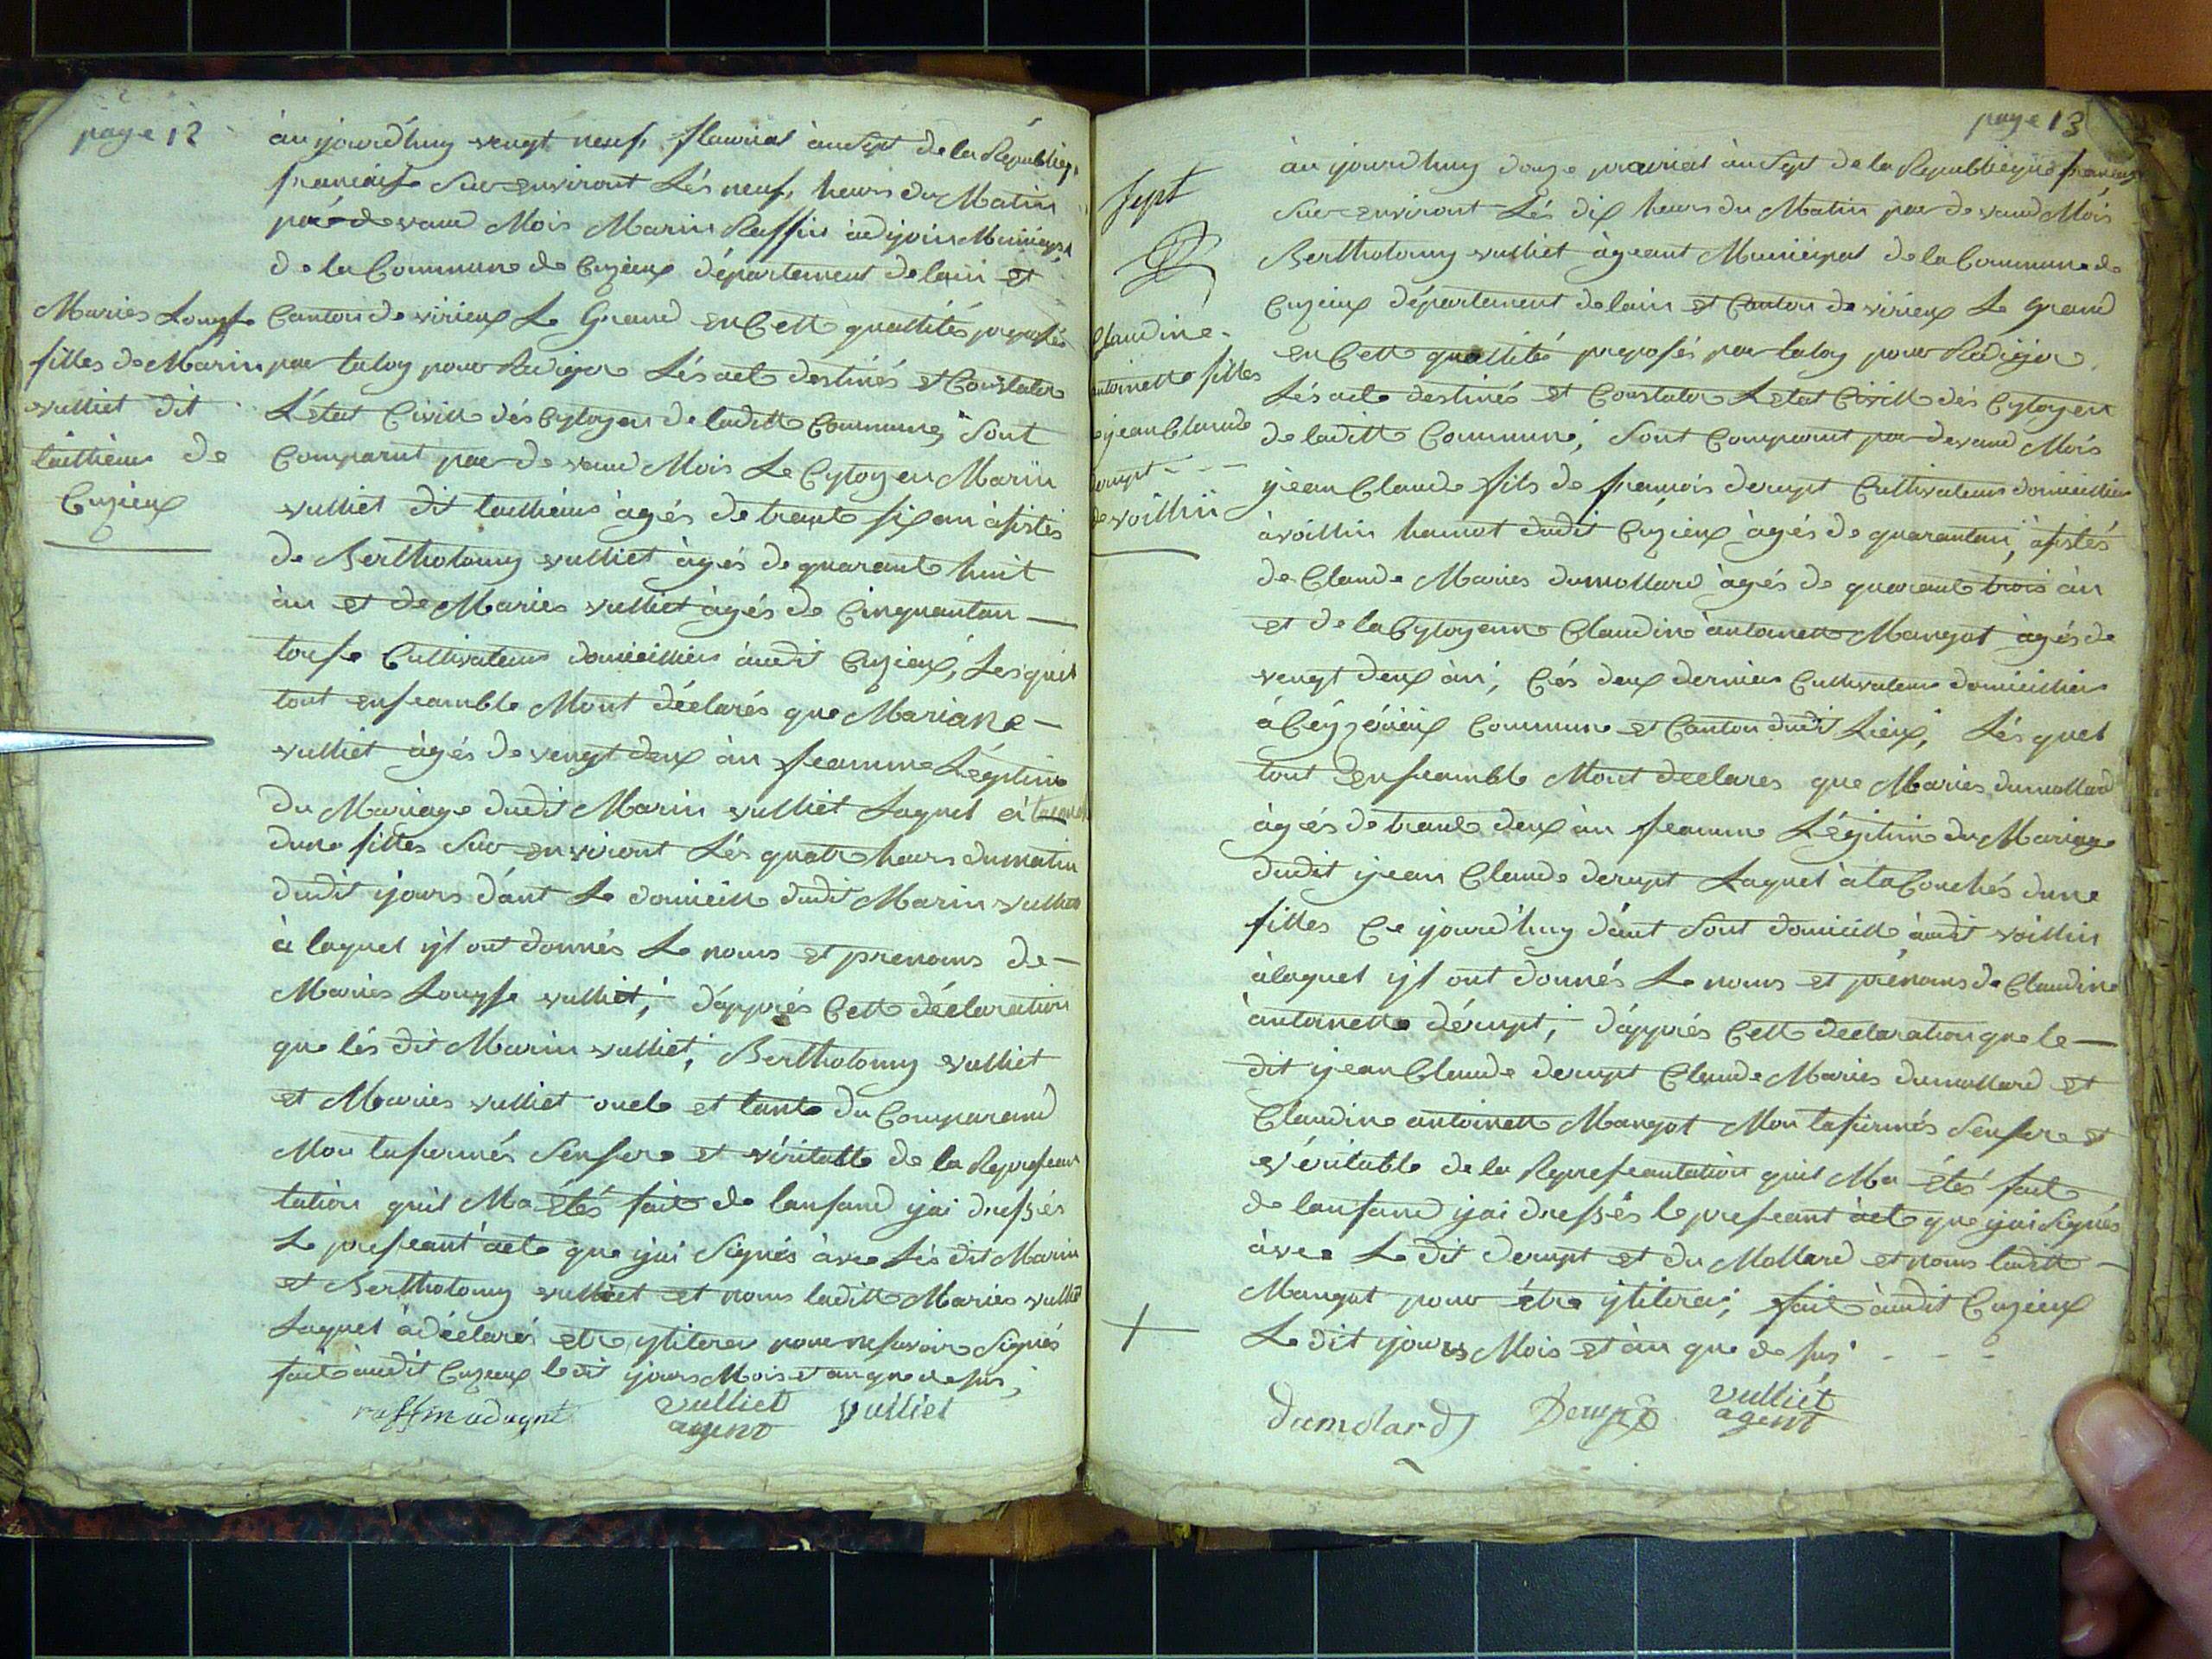 page 12
àu yjourd'huy vengt neuf, flaurial àn sept de la Républiq,
francaise sur environt Lés neuf, heurs du Matin
par de vand Mois Marin Raffin àdjoin Municipal
de la Commune de Cuzieux département de lain et
Canton de virieux Le Grand en Cett quallités preposés
par laloy pour Rediger Lés act destinés et Constater
L'état Civill dés Cytoyen de laditte Commune, Sont
Comparut par de vand Mois Le Cytoyen Marin
vulliet dit laithieur àgés de trante six an àsistés
de Bertholomy vulliet àgés de quarante huit
àn et de Maries vulliet àgés de Cinquantan —
touse Cultivateur domicillier àudit Cuzieux, Lesquel
tout enseamble Mont déclarés que Mariane —
vulliet àgés de vengt deux àn feamme Légitime
du Mariage dudit Marin vulliet Laquel à
dune filles Sur environt Lés quatr heurs dumatin
dudit yjours dant Le domicille dudit Marin vulliet
à laquel yl ont donnés Le noms et prenoms de —
Maries Louyse vulliet, d'apprés Cett déclaration
que lés dit Marin vulliet, Bertholomy vulliet
et Maries vulliet oncle et tante du Comparand
Mon tafirmés Sensere et véritable de la Represean
tation quil Ma étés fait de lanfand yjai dressés
Le preseant àcte que yjai Signés àvec Lés dit Marin
et Bertholomy vulliet et noms laditte Maries vulliet
Laquel à déclarés etre ylitere pour ne savoir Signés
fait àudit Cuzieux ledit yjours Mois et an que desus,
raffin adagnt vulliet agent vulliet
Maries Louyse
filles de Marin
vulliet dit
laithieur de
Cuzieux
page 13
àu jourdhuy douze prairial àn Sept de la Republiqque francaise
Sur environt Lés dix heurs du Matin par de vand Mois
Bertholomy vulliet àgeant Municipal de la Commune de
Cuzieux département de lain et Canton de virieux Le grand
en Cett quallité preposés par laloy pour Rediger
Lés acte destinés et Constater L'etat Civill dés Cytoyen
de laditte Commune, Sont Comparut par devand Mois
yjean Claude fils de francois derupt Cultivateur domicillier
àvoillin hamot dudit Cuzieux àgés de quarantan, àsistés
de Claude Maries dumollard àgés de quarante trois àn
et de la Cytoyenne Claudine antoinette Mangot àgés de
vengt deux àn, Cés deux dernier Cultivateur domicillier
à Ceyzérieux Commune et Canton dudit Lieux, Lésquel
tout Enseamble Mont declares que Maries dumollard
àgés de trante deux àn feamme Légitime du Mariage
dudit yjean Claude derupt Laquel àla Couchés dune
filles Ce yjourd'huy dant Sont domicille àudit voillin
àlaquel yl ont donnés Le noms et prénoms de Claudine
àntoinette dérupt, d'apprés Cett declaration que le —
dit yjean Claude derupt Claude Maries dumollard et
Claudine antoinette Mangot Mon tafirmés Sensere et
véritable de la Represeantation quil Ma étés fait
de lanfand yjai dressés le preseant àcte que yjai Signés
àvec Le dit derupt et du Mollard et noms laditte —
Mangot pour étre ylitere, fait àudit Cuzieux
Le dit yjours Mois et àn que de sus, - - -
Dumolard Derupt vulliet agent
sept
Claudine
antoinette filles
de yjean Claude
derupt - - -
de voillin